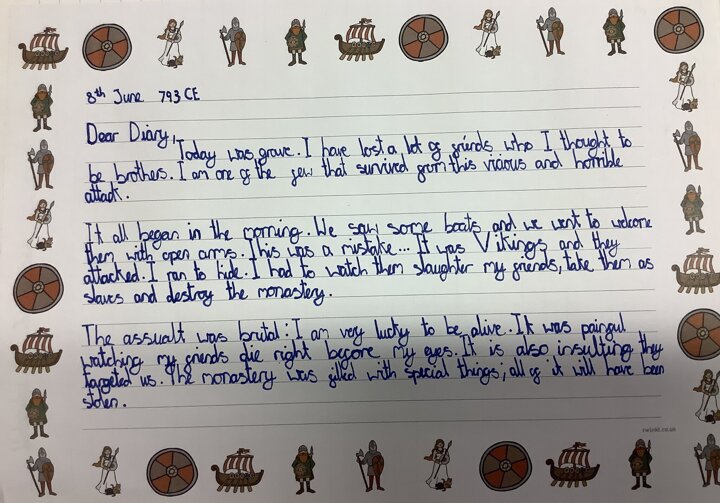 8th June 793 CE
Dear Diary,
Today was grave. I have lost a lot of friends who I thought to
be brothers. I am one of the few that survived from this vicious and horrible
attack.
It all began in the morning. We saw some boats and we went to welcome
them with open arms. This was a mistake... It was Vikings and they
attacked. I ran to hide. I had to watch them slaughter my friends, take them as
slaves and destroy the monastery.
The assualt was brutal: I am very lucky to be alive. It was painful
watching my friends die right before my eyes. It is also insulting they
targeted us. The monastery was filled with special things, all of it will have been
stolen.
twinkl.co.uk